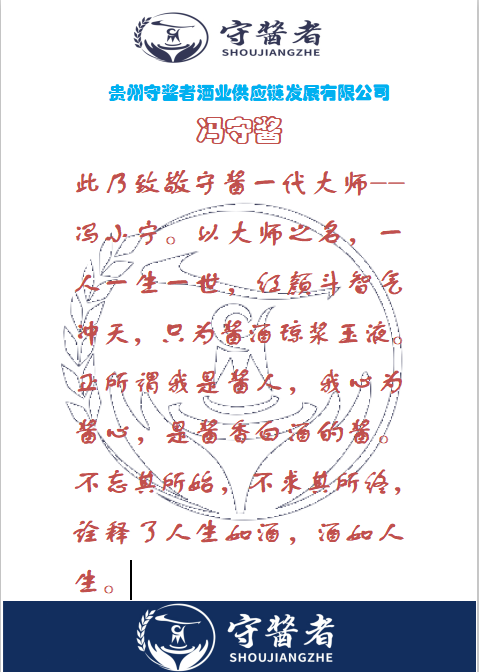 守酱者
SHOUJIANGZHE
贵州守酱者酒业供应链发展有限公司
冯守酱
此乃致敬守酱一代大师--
冯小宁。以大师之名，一
人一生一世，红颜斗智气
冲天，只为酱酒琼浆玉液。
正所谓我是酱人，我心为
酱心，是酱香白酒的酱。
不忘其所始，不求其所终，
诠释了人生如酒，酒如人
生。
守酱者
SHOUJIANGZHE